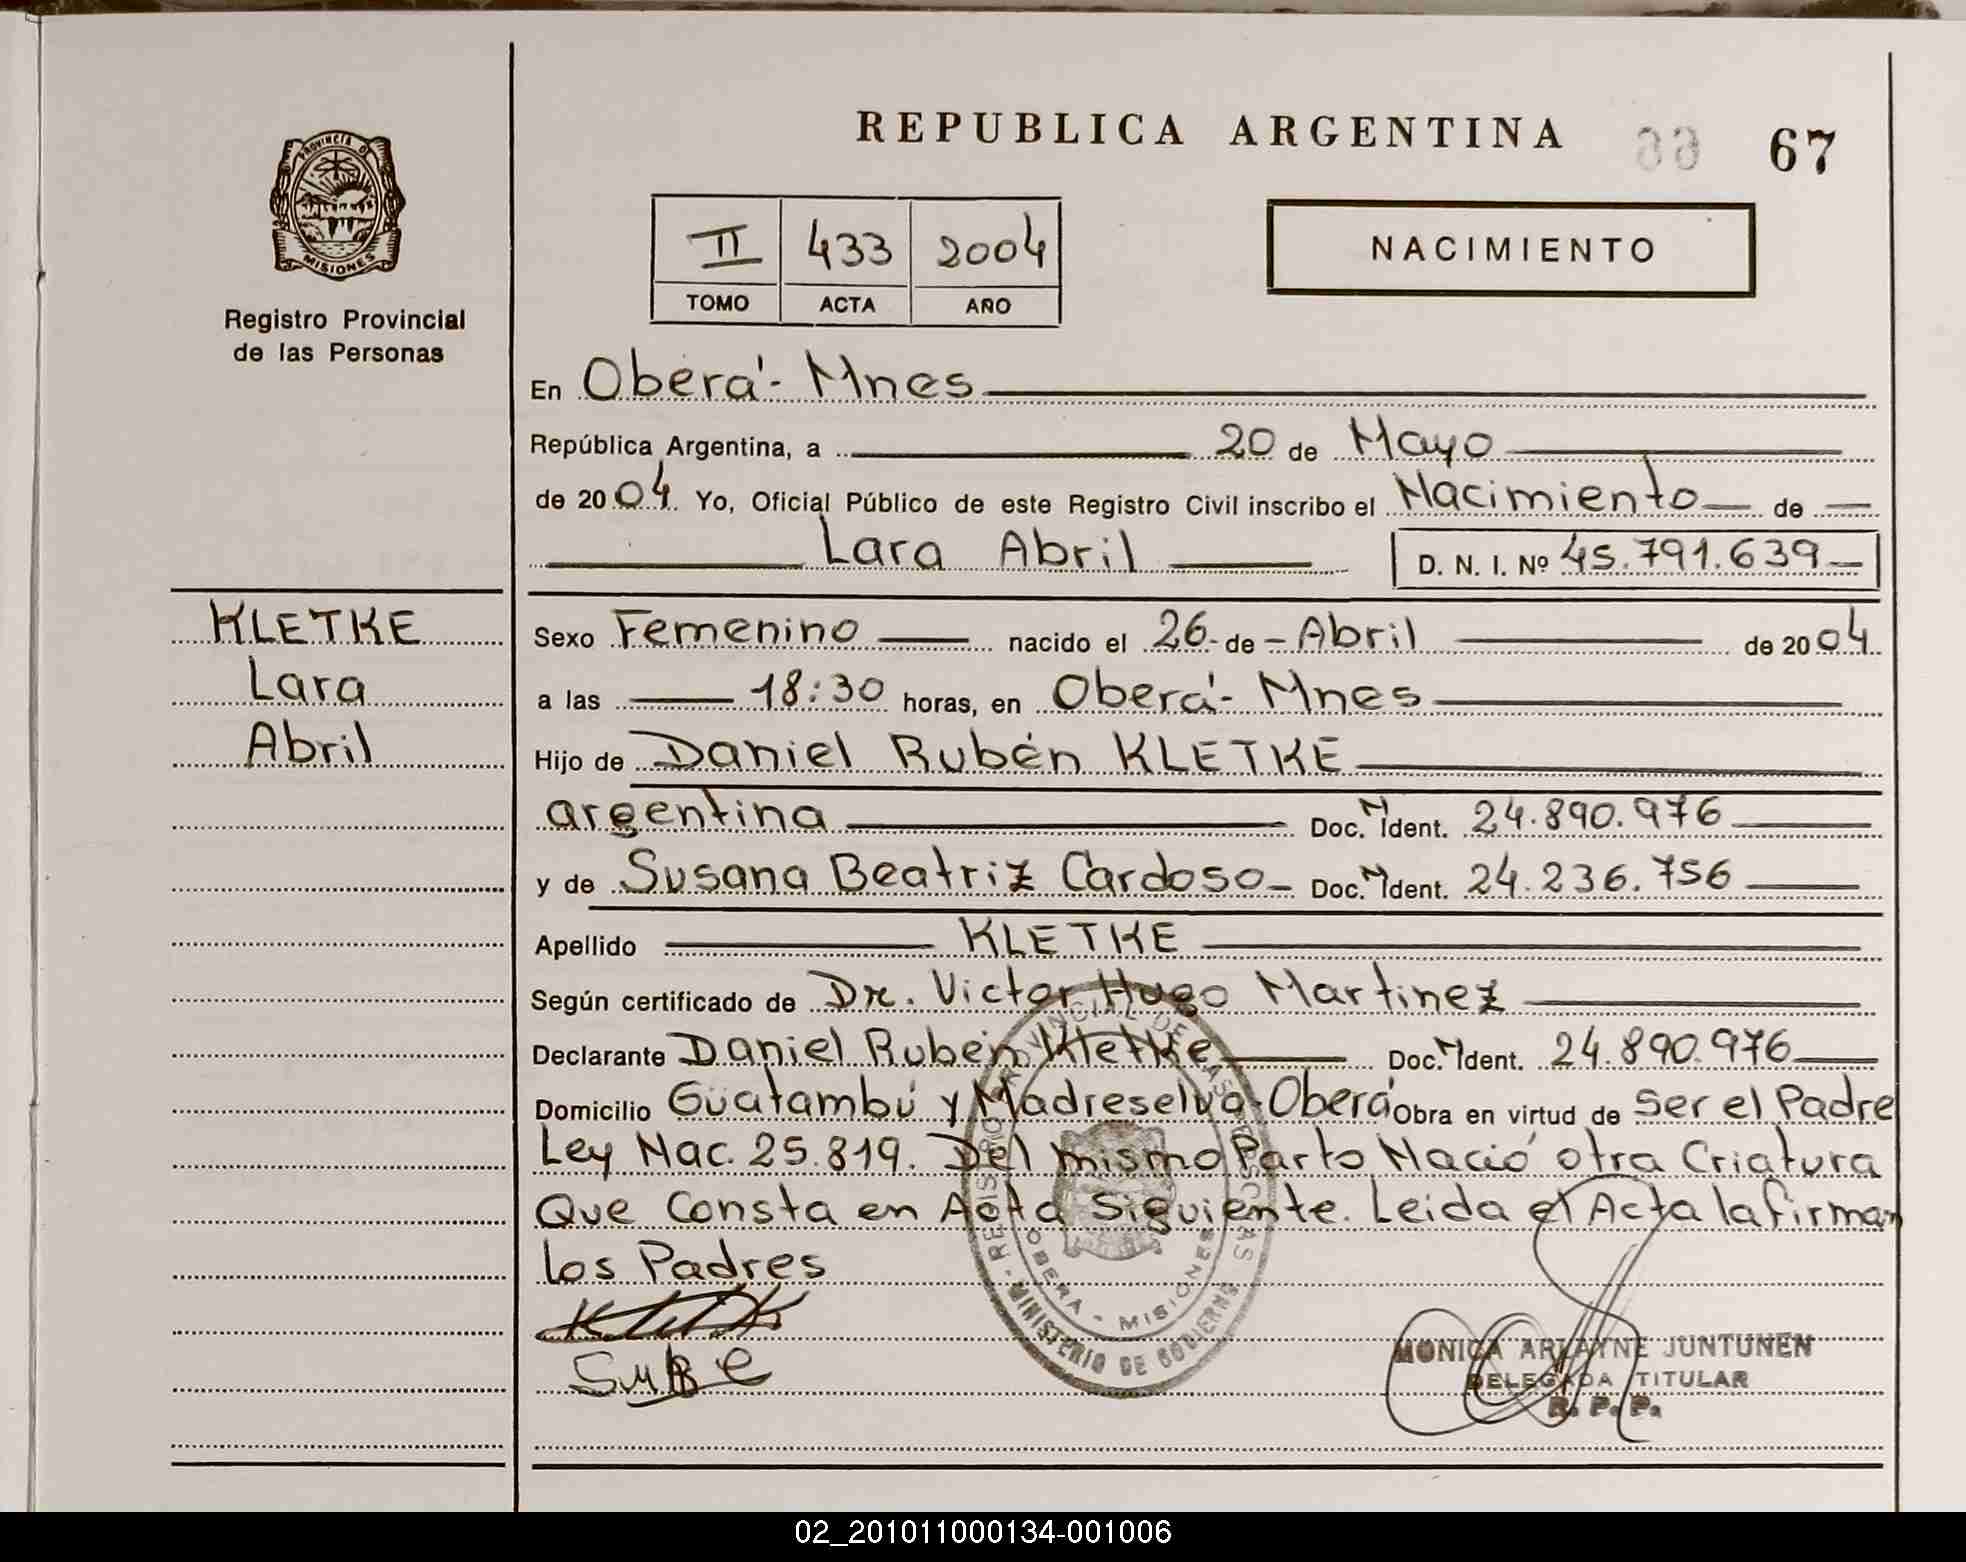 REPUBLICA ARGENTINA
67
PROVINCIA DE
MISIONES
Registro Provincial
de las Personas
II 433 2004
TOMO ACTA AÑO
NACIMIENTO
En Oberá - Mnes
República Argentina, a 20 de Mayo
de 2004. Yo, Oficial Público de este Registro Civil inscribo el Nacimiento de
Lara Abril D. N. I. Nº 45.791.639
KLETKE
Lara
Abril
Sexo Femenino nacido el 26 de Abril de 2004
a las 18:30 horas, en Oberá - Mnes
Hijo de Daniel Rubén KLETKE
argentina Doc. N Ident. 24.890.976
y de Susana Beatriz Cardoso Doc. N Ident. 24.236.756
Apellido KLETKE
Según certificado de Dr. Victor Hugo Martinez
Declarante Daniel Rubén Kletke Doc. N Ident. 24.890.976
Domicilio Guatambú y Madreselva - Oberá Obra en virtud de Ser el Padre
Ley Nac. 25.819. Del mismo Parto Nació otra Criatura
Que Consta en Acta Siguiente. Leida el Acta la firman
los Padres
REGISTRO PROVINCIAL DE LAS PERSONAS
OBERA - MISIONES
MINISTERIO DE GOBIERNO
MONICA ARLAYNE JUNTUNEN
DELEGADA TITULAR
R. P. P.
02_201011000134-001006